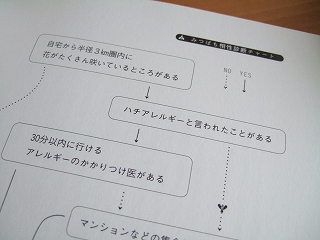 みつばち相性診断チャート
NO YES
自宅から半径3km圏内に
花がたくさん咲いているところがある
ハチアレルギーと言われたことがある
30分以内に行ける
アレルギーのかかりつけ医がある
マンションなどの集合